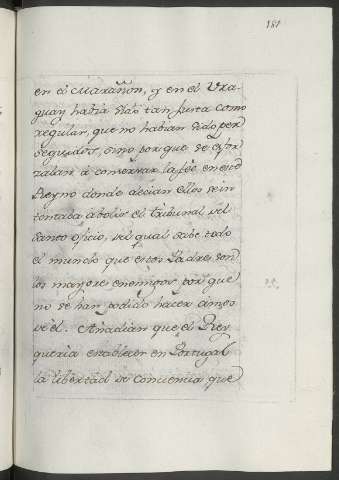 181
en el Marañon, y en el Vra-
guay habia sido tan justa como
regular, que no habian sido per
seguidos, sino por que se esfor
zaban à conservar la feé en este
Reyno donde decian ellos se in
tentaba abolir el tribunal del
santo oficio, del qual sabe todo
el mundo que estos Padres son
los mayores enemigos por que
no se han podido hacer dueños
de él. Añadian que el Rey
queria establecer en Portugal
la libertad de conciencia que